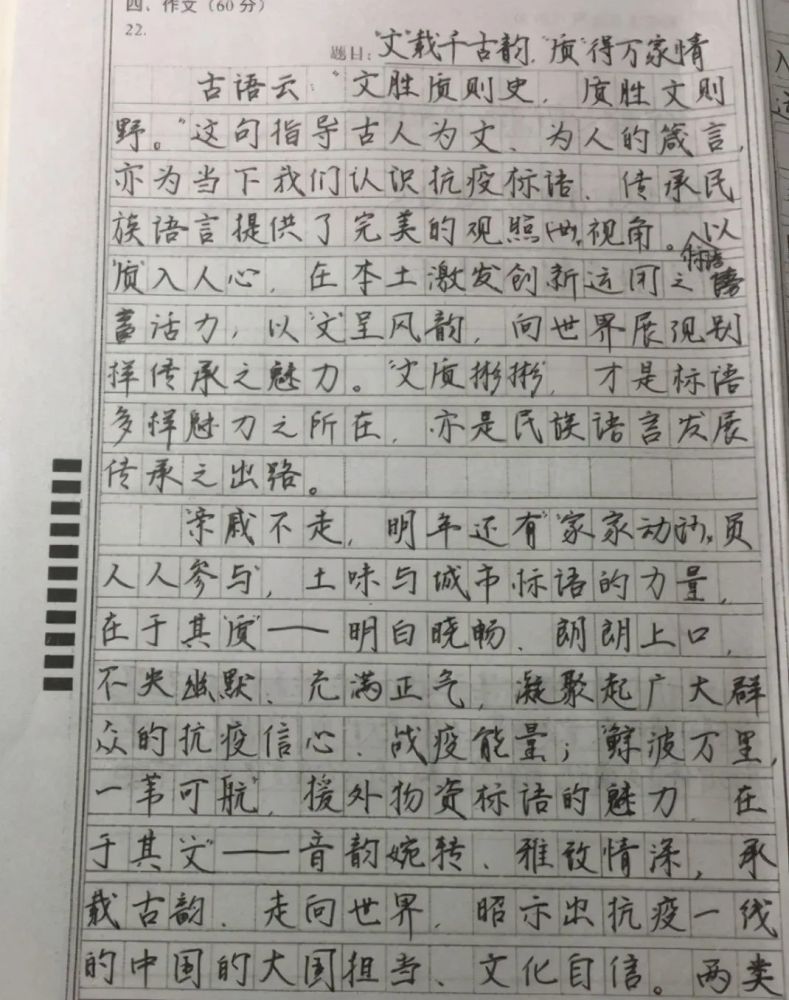 四、作文（60分）
22.
题目："文"载千古韵，"质"得万家情
古语云："文胜质则史，质胜文则
野。"这句指导古人为文、为人的箴言，
亦为当下我们认识抗疫标语、传承民
族语言提供了完美的观照视角。以
"质"入人心，在本土激发创新运用之标语
活力，以"文"呈风韵，向世界展现别
样传承之魅力。"文质彬彬"，才是标语
多样魅力之所在，亦是民族语言发展
传承之出路。
"亲戚不走，明年还有""家家动员，
人人参与"，土味与城市标语的力量，
在于其"质"——明白晓畅、朗朗上口，
不失幽默、充满正气，凝聚起广大群
众的抗疫信心、战疫能量；"鲸波万里，
一苇可航"，援外物资标语的魅力，在
于其"文"——音韵婉转、雅致情深，承
载古韵、走向世界，昭示出抗疫一线
的中国的大国担当、文化自信。两类